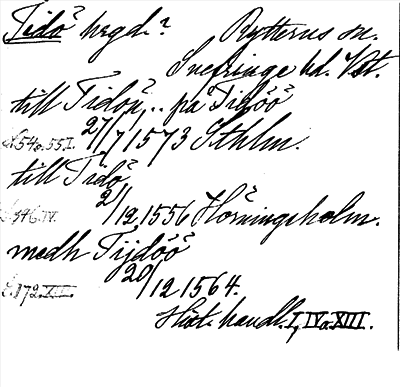 Tidö hrgd. Rytterns sn.
Snefringe hd. Vst.
till Tidöö,.. på Tidöö
s. 54 o. 55 I. 27/7 1573 Sthlm.
till Tidö
s. 546. IV. 2/12 1556 Hörningsholm.
medh Tijdöö
s. 172. XIII. 20/12 1564.
Hist. handl. I, IV o. XIII.